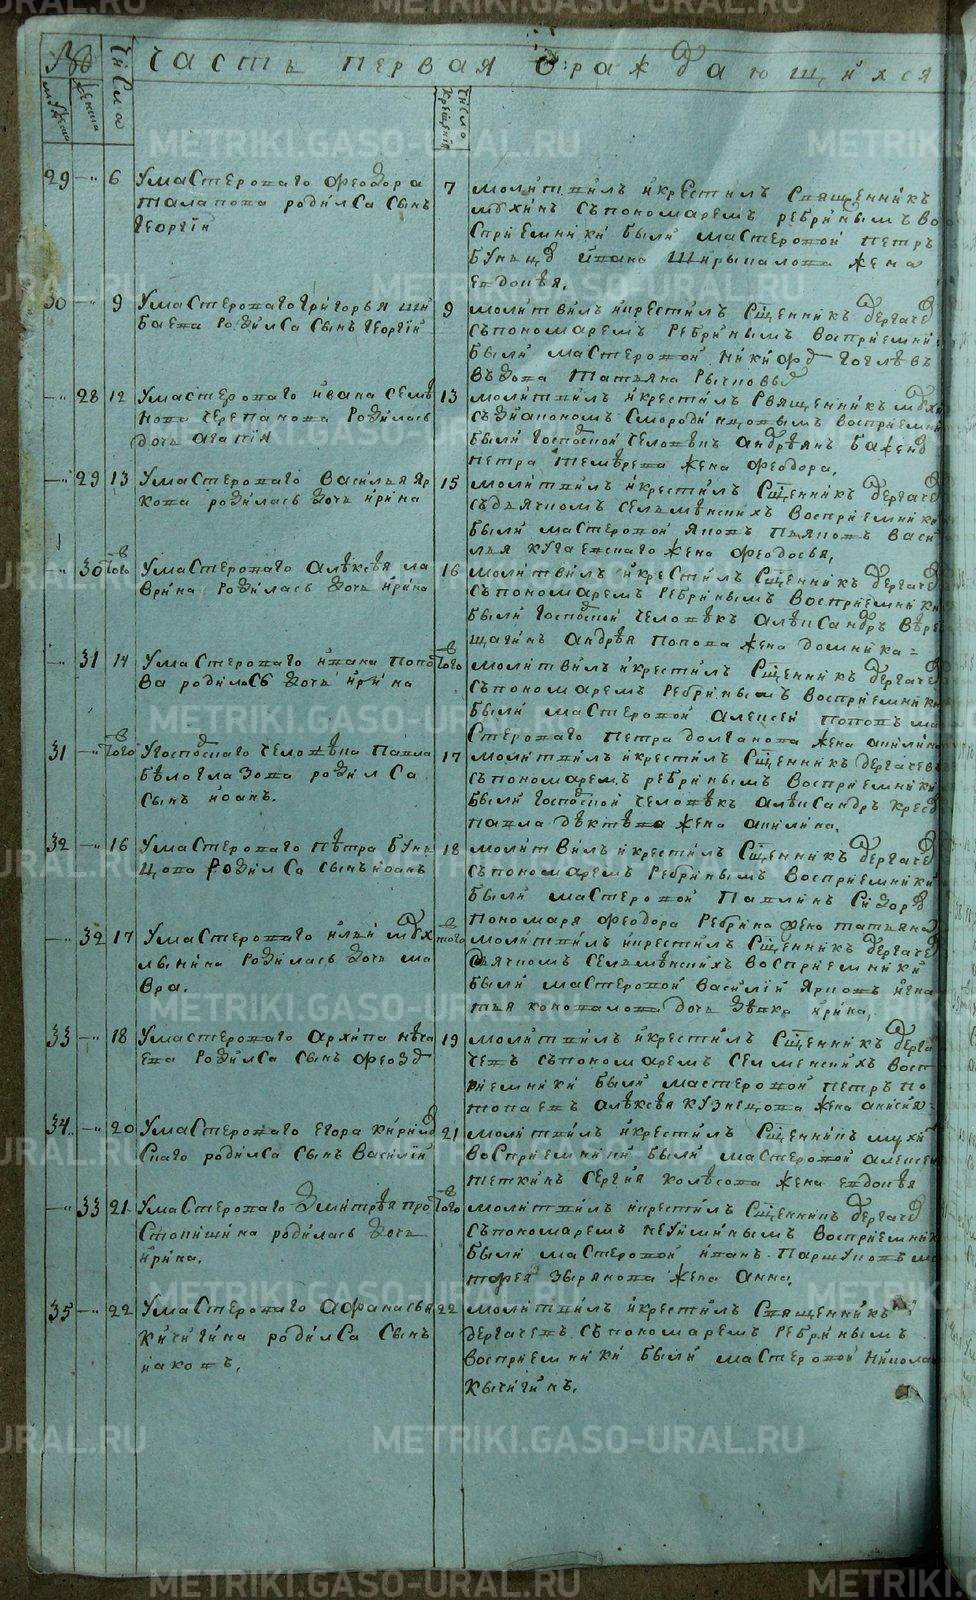 Число
Часть первая о раждающихся
мужеска
женска
Число крещения
29 — 6 У мастероваго Феодора
Талапова родился сынъ
Георгiй
7 молитвилъ и крестилъ священникъ
Мухинъ съ пономаремъ Ребринымъ во
сприемники были мастеровой Петръ
Бунцо Ивана Шарыпалова жена
Евдокiя.
30 — 9 У мастероваго Григорья Ши
баева родился сынъ Георгий
9 молитвилъ и крестилъ Сщенникъ Дергаче
съ пономаремъ Ребринымъ восприемни
были мастеровой Никифо Гоглѣвъ
вдова Татьяна Рычновы
— 28 12 У мастероваго Ивана Семѣ
нова Черепанова родилась
дочь Агапiя
13 молитвилъ и крестилъ священникъ Мухи
съ дiакономъ Смородинцовымъ восприемни
были господской человѣкъ Андрѣянъ Бажено
Петра жена Феодора.
— 29 13 У мастероваго Василья Яр
кова родилась дочь Ирина
15 молитвилъ и крестилъ Сщенникъ Дергаче
съ дьячкомъ Сельмѣнскихъ восприемники
были мастеровой Яковъ Пьяновъ Васи
лья Кугаевскаго жена Феодосья.
— 30 в того У мастероваго Алѣксѣя ла
врина родилась дочь Ирина
16 молитвилъ и крестилъ Сщенникъ Дергаче
съ пономаремъ Ребринымъ восприемники
были господской человѣкъ Алѣксандръ Вѣре
щагинъ Андрѣя Попова жена Домника=
— 31 14 У мастероваго Ивана Попо
ва родилась дочь Ирина
в того молитвилъ и крестилъ Сщенникъ Дергаче
съ пономаремъ Ребринымъ восприемники
были мастеровой Алексей Поповъ ма
стероваго Петра Долганова жена Акилина
31 — в того У господскаго человѣка Павла
Бѣлоглазова родился
сынъ Иоанъ.
17 молитвилъ и крестилъ Сщенникъ Дергачевъ
съ пономаремъ Ребринымъ восприемники
были господской человѣкъ Алѣксандръ
Павла Дѣктѣва жена Акилина.
32 — 16 У мастероваго Пѣтра Бунь
цова родился сынъ Иоанъ
18 молитвилъ и крестилъ Сщенникъ Дергаче
съ пономаремъ Ребринымъ восприемники
были мастеровой Павлинъ Сидоро
пономаря Феодора Ребрина жена Татьяна
— 32 17 У мастероваго Ильи Мух
лынина родилась дочь Ма
вра.
в того молитвилъ и крестилъ Сщенникъ Дергаче
дьячкомъ Сельмѣнскихъ восприемники
были мастеровой Василiй Ярковъ Игна
тья Коновалова дочь дѣвка Ирина.
33 — 18 У мастероваго Архипа Неча
ева родился сынъ Феодо
19 молитвилъ и крестилъ Сщенникъ Дерга
чевъ съ пономаремъ Селменскихъ восп
риемники были мастеровой Петръ По
топаевъ Алѣксѣя Кузнецова жена Анисия=
34 — 20 У мастероваго Егора Кирило
скаго родился сынъ Василiй
21 молитвилъ и крестилъ Сщенникъ Мухи
восприемники были мастеровой Алексей
Теткинъ Сергiя Колѣсова жена Евдокѣя
— 33 21 У мастероваго Дмитрѣя Про
стокишина родилась дочь
Ирина.
в того молитвилъ и крестилъ Сщенникъ Дергаче
съ пономаремъ Неуйминымъ восприемник
были мастеровой Иванъ Паршуковъ ма
тфея Зырянова жена Анна.
35 — 22 У мастероваго Афанасья
Кичигина родился сынъ
Иаковъ.
22 молитвилъ и крестилъ священникъ
Дергачевъ съ пономаремъ Ребринымъ
восприемники были мастеровой Никола
Кычигинъ.